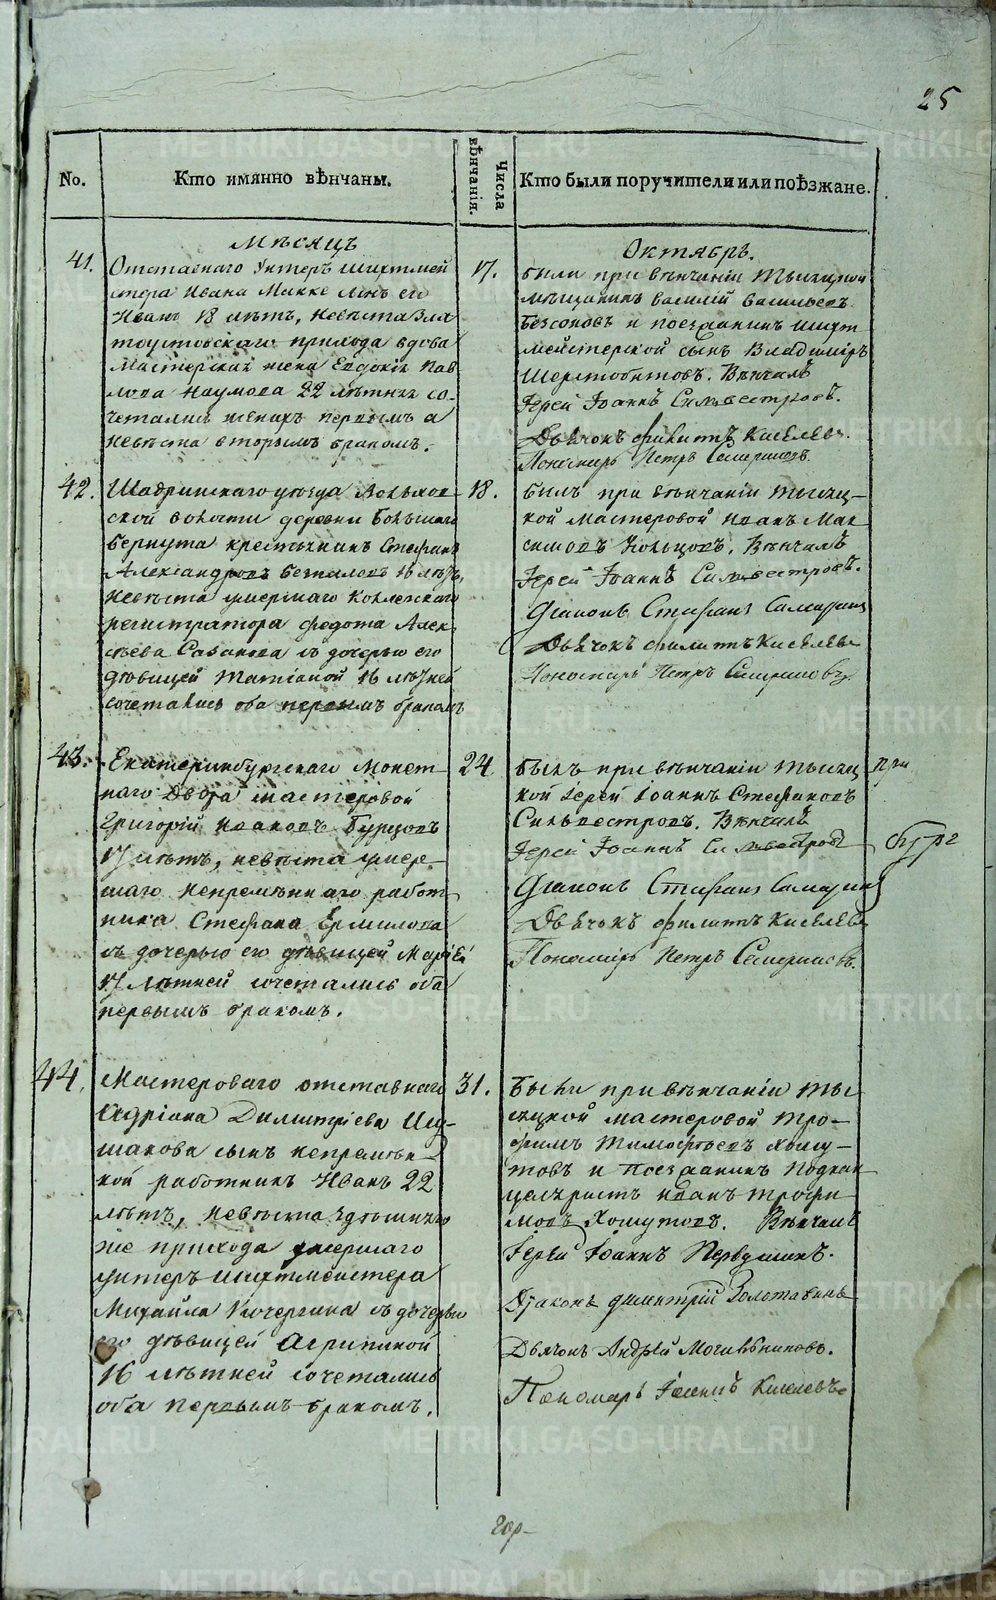 25
No.
Кто имянно вѣнчаны.
Числа вѣнчанія.
Кто были поручители или поѣзжане.
Мѣсяцъ
Октябрь.
41.
Отставнаго Унтеръ Шихтмей
стера Ивана Микке сынъ его
Иванъ 18 лѣтъ, невѣста Зла
тоустовскаго прихода вдова
мастерская жена Евдокія Пав
лова Наумова 22 лѣтняя со-
четались женихъ первымъ а
невѣста вторымъ бракомъ.
17.
были при вѣнчаніи тысяцкой
мѣщанинъ Василій Васильевъ
Безсоновъ и поезжанинъ шихт
мейстерской сынъ Владиміръ
Шерстобитовъ. Вѣнчалъ
Іерей Іоаннъ Сильвестровъ.
Дьячокъ Филипъ Киселевъ.
Пономарь Петръ
42.
Шадринскаго уѣзда
ской волости деревни Большаго
крестьянинъ Стефанъ
Александровъ 18 лѣтъ,
невѣста умершаго Коллежскаго
регистратора Федота Алек
сѣева съ дочерью его
дѣвицей Татіаной 16 лѣтней
сочетались оба первымъ бракомъ
18.
былъ при вѣнчаніи тысяц-
кой мастеровой Иванъ Мак
симовъ Кольцовъ. Вѣнчалъ
Іерей Іоаннъ Сильвестровъ.
Діаконъ Стефанъ
Дьячокъ Филипъ Киселевъ
Пономарь Петръ
43.
Екатеринбургскаго Монет
наго Двора мастеровой
Григорій Ивановъ Бурцовъ
17 лѣтъ, невѣста умер-
шаго непремѣннаго работ
ника Стефана Ермилова
съ дочерью его дѣвицей Маріей
17 лѣтней сочетались оба
первымъ бракомъ.
24
былъ при вѣнчаніи тысяц
кой Іерей Іоаннъ Стефановъ
Сильвестровъ. Вѣнчалъ
Іерей Іоаннъ Сильвестровъ
Діаконъ Стефанъ
Дьячокъ Филипъ Киселевъ
Пономарь Петръ
при
44.
Мастероваго отставнаго
Адріана Димитріева Иш-
макова сынъ непремѣн-
ной работникъ Иванъ 22
лѣтъ, невѣста здѣшняго
же прихода умершаго
унтеръ шихтмейстера
Михайла Кочергина съ дочерью
его дѣвицей Агрипиной
16 лѣтней сочетались
оба первымъ бракомъ.
31.
были при вѣнчаніи ты
сяцкой мастеровой Тро-
фимъ Тимофѣевъ Хому-
товъ и поезжанинъ подкан
целяристъ Иванъ Трофи
мовъ Хомутовъ. Вѣнчалъ
Іерей Іоаннъ Первушинъ.
Діаконъ Димитрій Золотавинъ
Дьячокъ Андрей Могильниковъ.
Пономарь Іоаннъ Киселевъ